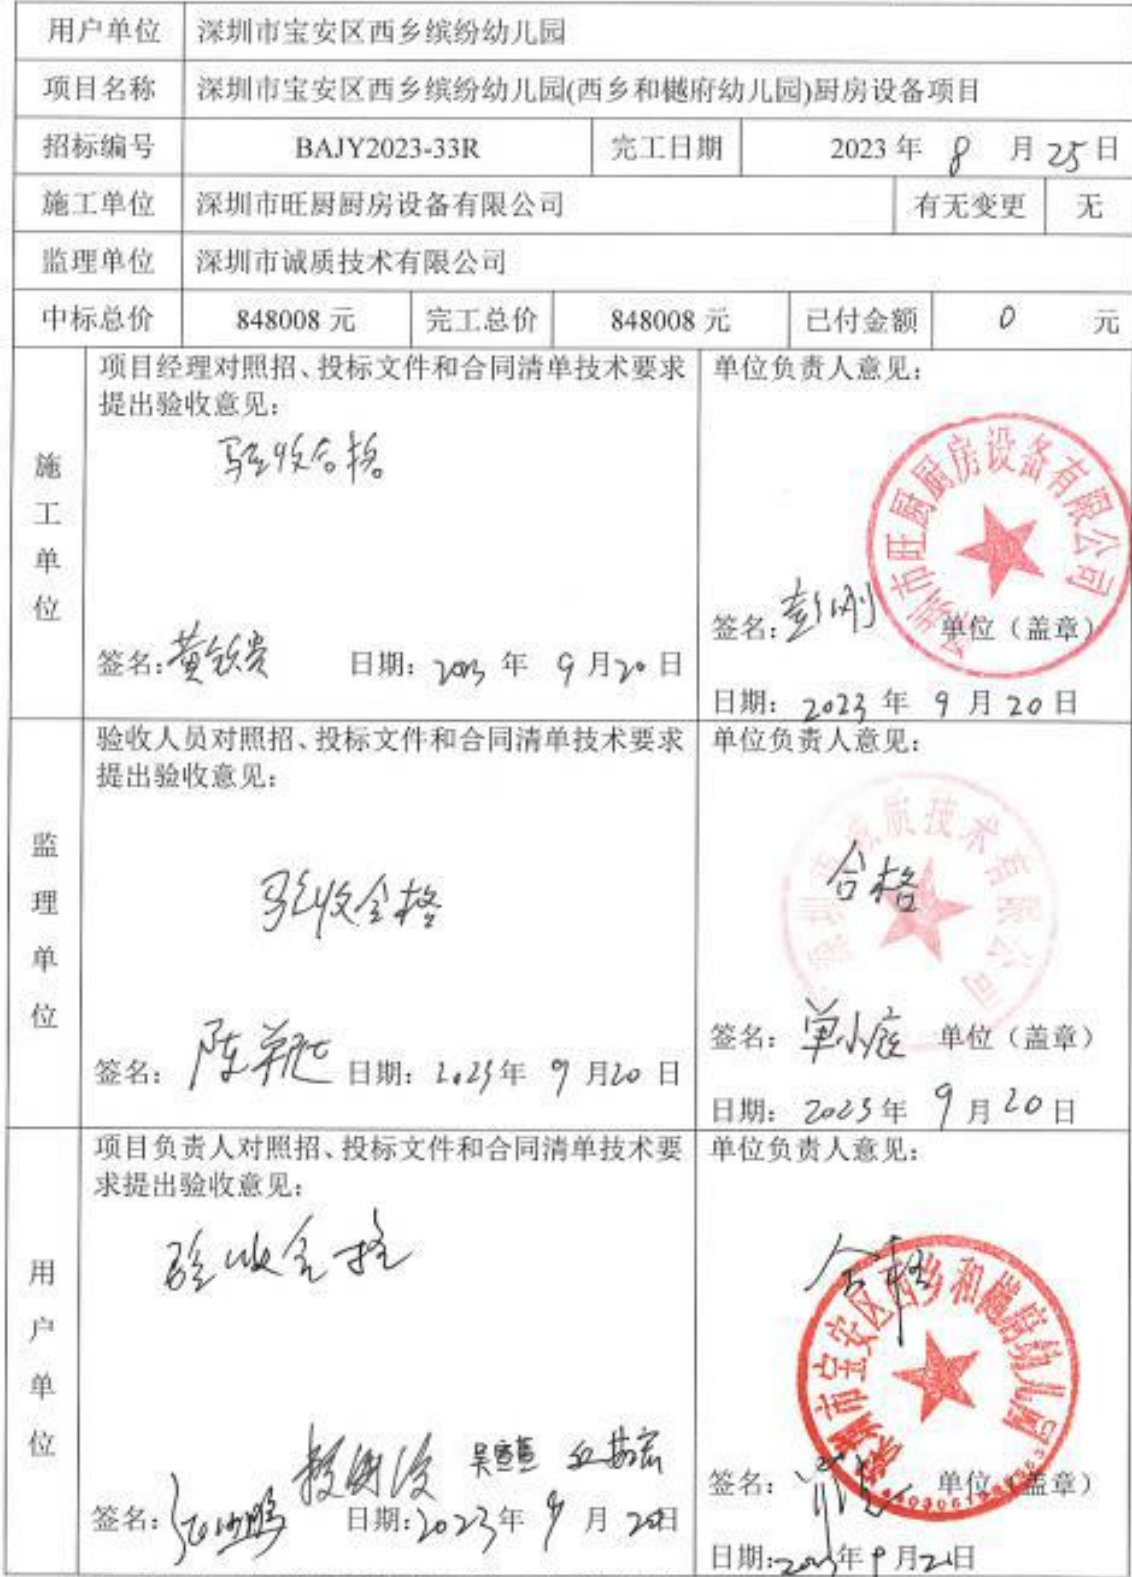 用户单位 深圳市宝安区西乡缤纷幼儿园
项目名称 深圳市宝安区西乡缤纷幼儿园(西乡和樾府幼儿园)厨房设备项目
招标编号 BAJY2023-33R 完工日期 2023 年 8 月 25 日
施工单位 深圳市旺厨厨房设备有限公司 有无变更 无
监理单位 深圳市诚质技术有限公司
中标总价 848008 元 完工总价 848008 元 已付金额 0 元
施工单位
项目经理对照招、投标文件和合同清单技术要求
提出验收意见:
验收合格
签名: 日期: 2023 年 9 月 20 日
单位负责人意见:
深圳市旺厨厨房设备有限公司
签名: 彭刚 单位（盖章）
日期: 2023 年 9 月 20 日
监理单位
验收人员对照招、投标文件和合同清单技术要求
提出验收意见:
验收合格
签名: 陈 日期: 2023 年 9 月 20 日
单位负责人意见:
合格
深圳市诚质技术有限公司
签名: 单小 单位（盖章）
日期: 2023 年 9 月 20 日
用户单位
项目负责人对照招、投标文件和合同清单技术要
求提出验收意见:
验收合格
签名: 日期: 2023 年 9 月 20 日
单位负责人意见:
合格
深圳市宝安区西乡和樾府幼儿园
签名: 单位（盖章）
日期: 2023 年 9 月 20 日